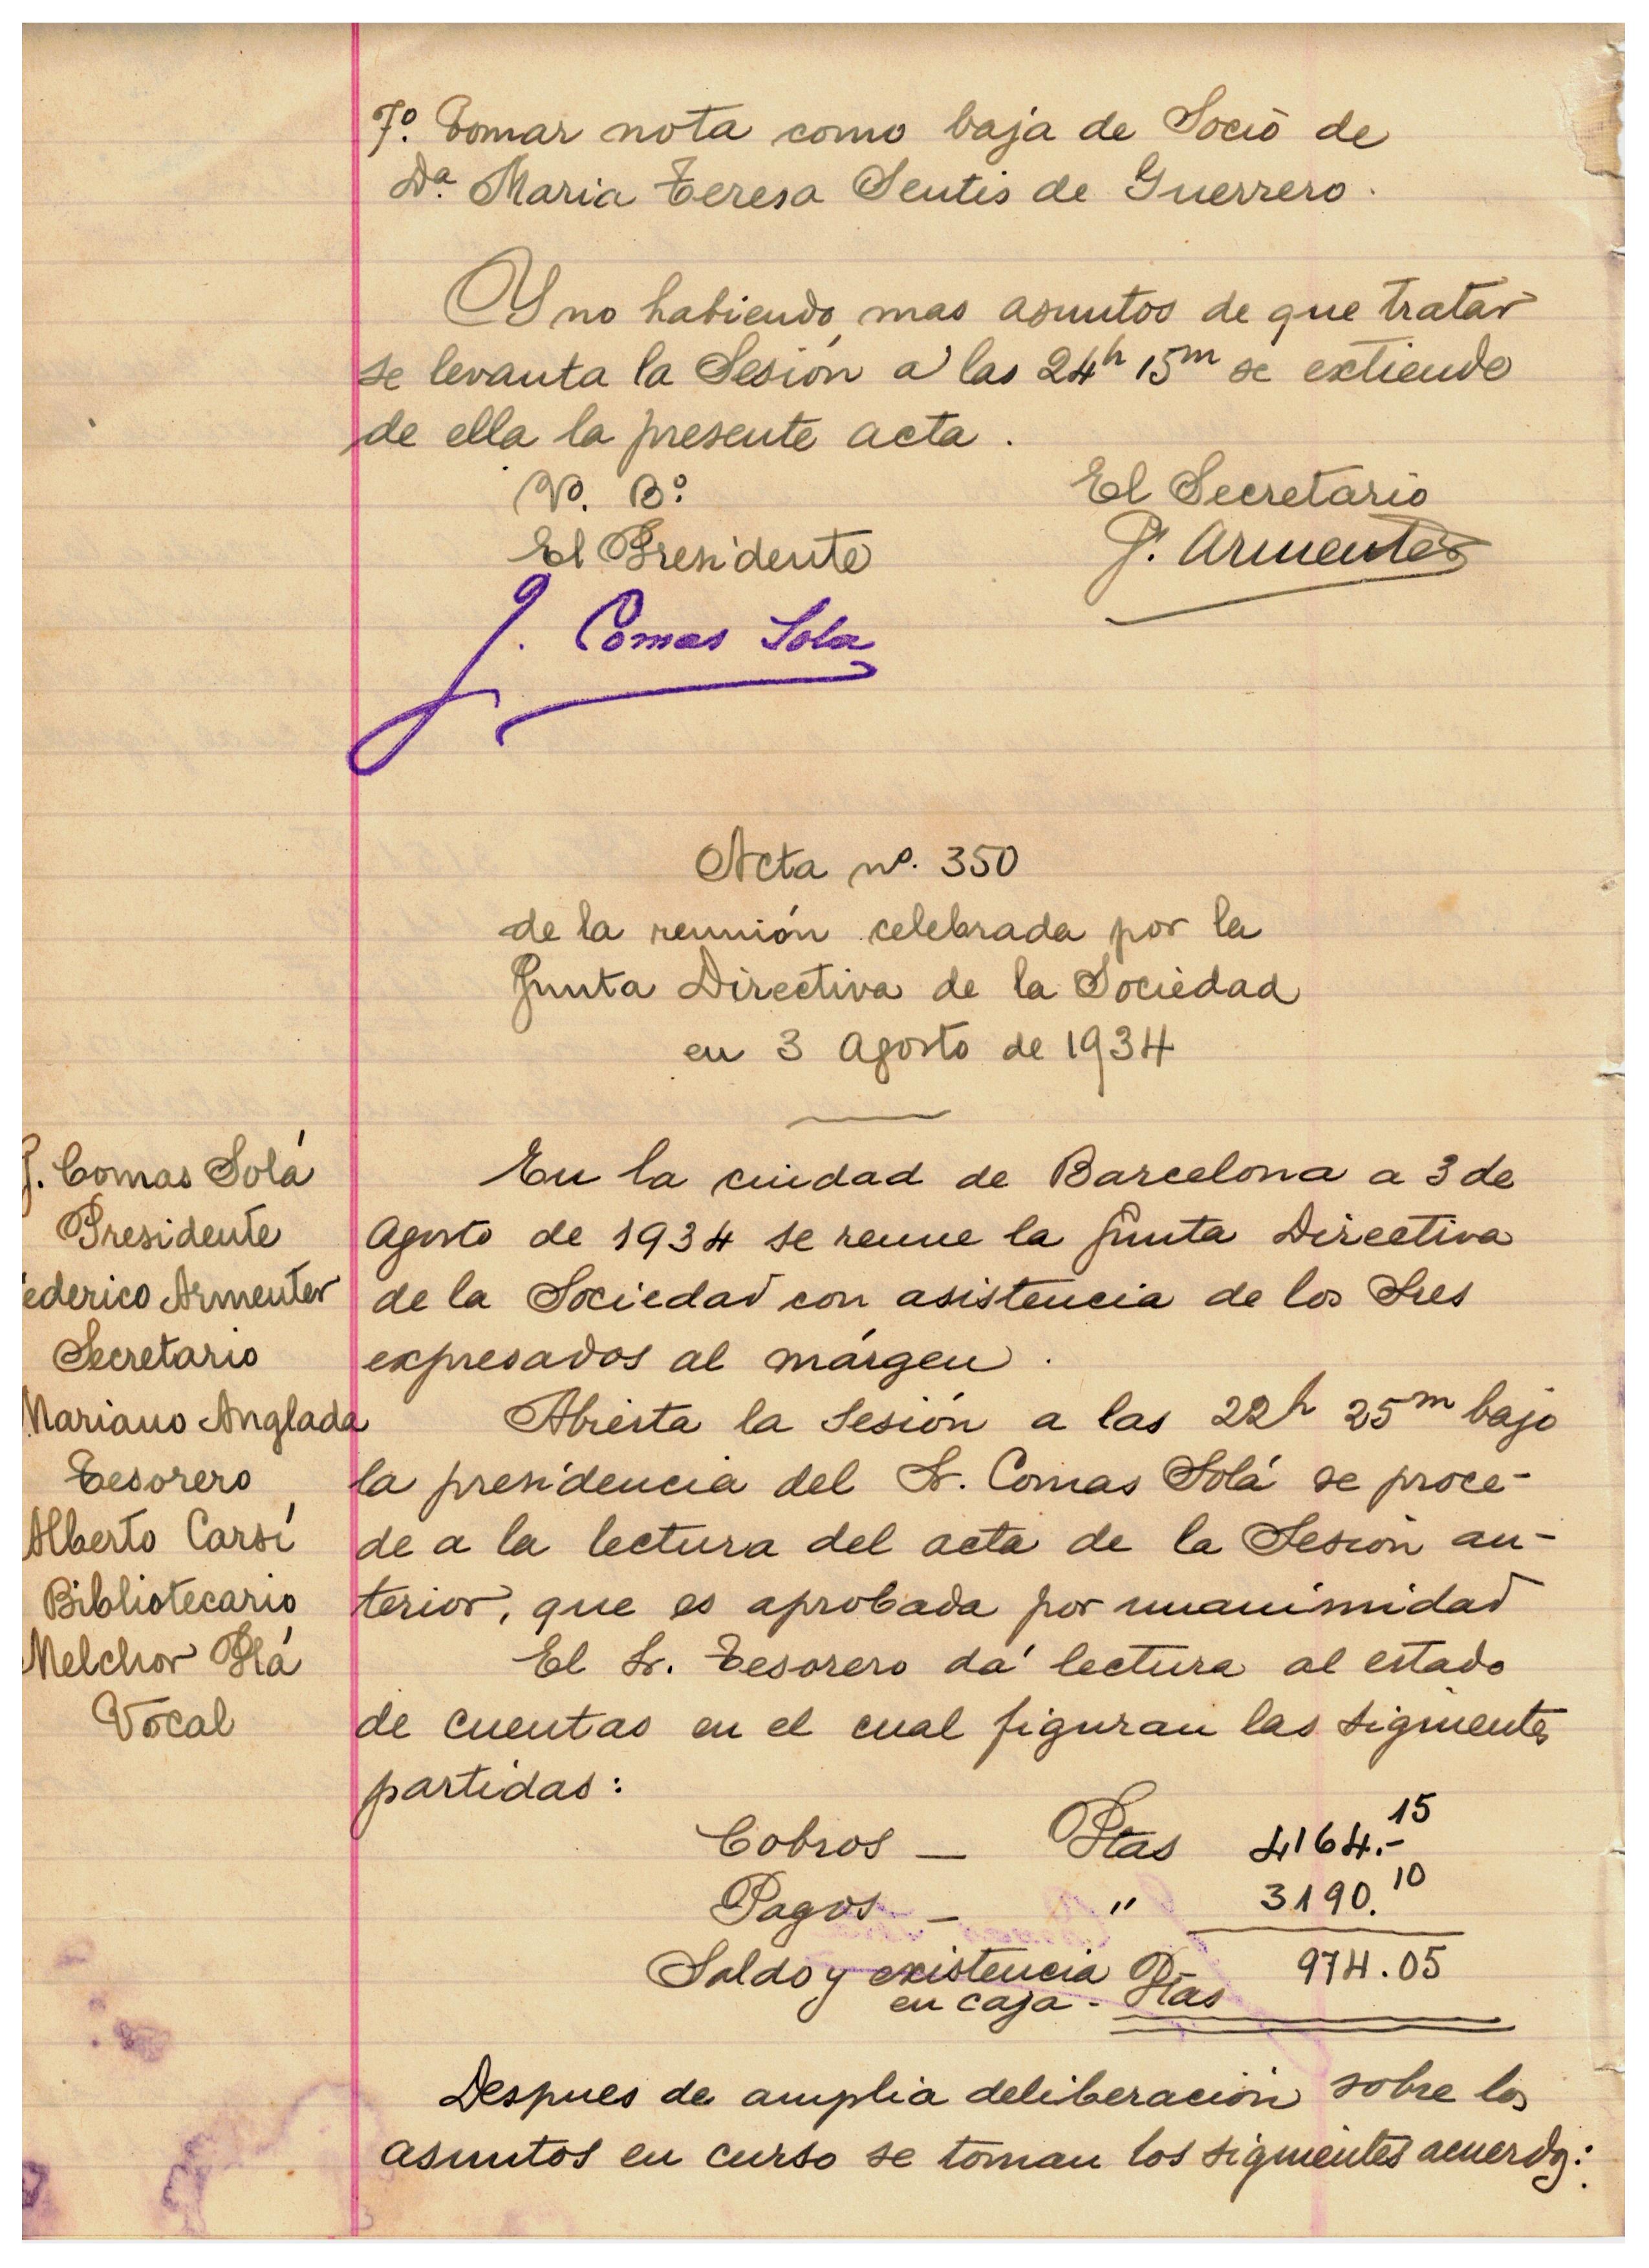 7º. Tomar nota como baja de Socio de
Dª. Maria Teresa Sentis de Guerrero.
Y no habiendo mas asuntos de que tratar
se levanta la Sesión a las 24h 15m se extiende
de ella la presente acta.
Vº. Bº.
El Presidente
J. Comas Sola
El Secretario
F. Armenter
Acta nº. 350
de la reunión celebrada por la
Junta Directiva de la Sociedad
en 3 Agosto de 1934
J. Comas Solá
Presidente
ederico Armenter
Secretario
Mariano Anglada
Tesorero
Alberto Carsí
Bibliotecario
Melchor Plá
Vocal
En la ciudad de Barcelona a 3 de
Agosto de 1934 se reune la Junta Directiva
de la Sociedad con asistencia de los Sres
expresados al márgen.
Abierta la Sesión a las 22h 25m bajo
la presidencia del Sr. Comas Solá se proce-
de a la lectura del acta de la Sesión an-
terior, que es aprobada por unanimidad
El Sr. Tesorero dá lectura al estado
de cuentas en el cual figuran las siguientes
partidas:
Cobros — Ptas 4164.-15
Pagos — " 3190.10
Saldo y existencia
en caja - Ptas 974.05
Despues de amplia deliberación sobre los
asuntos en curso se toman los siguientes acuerdos: